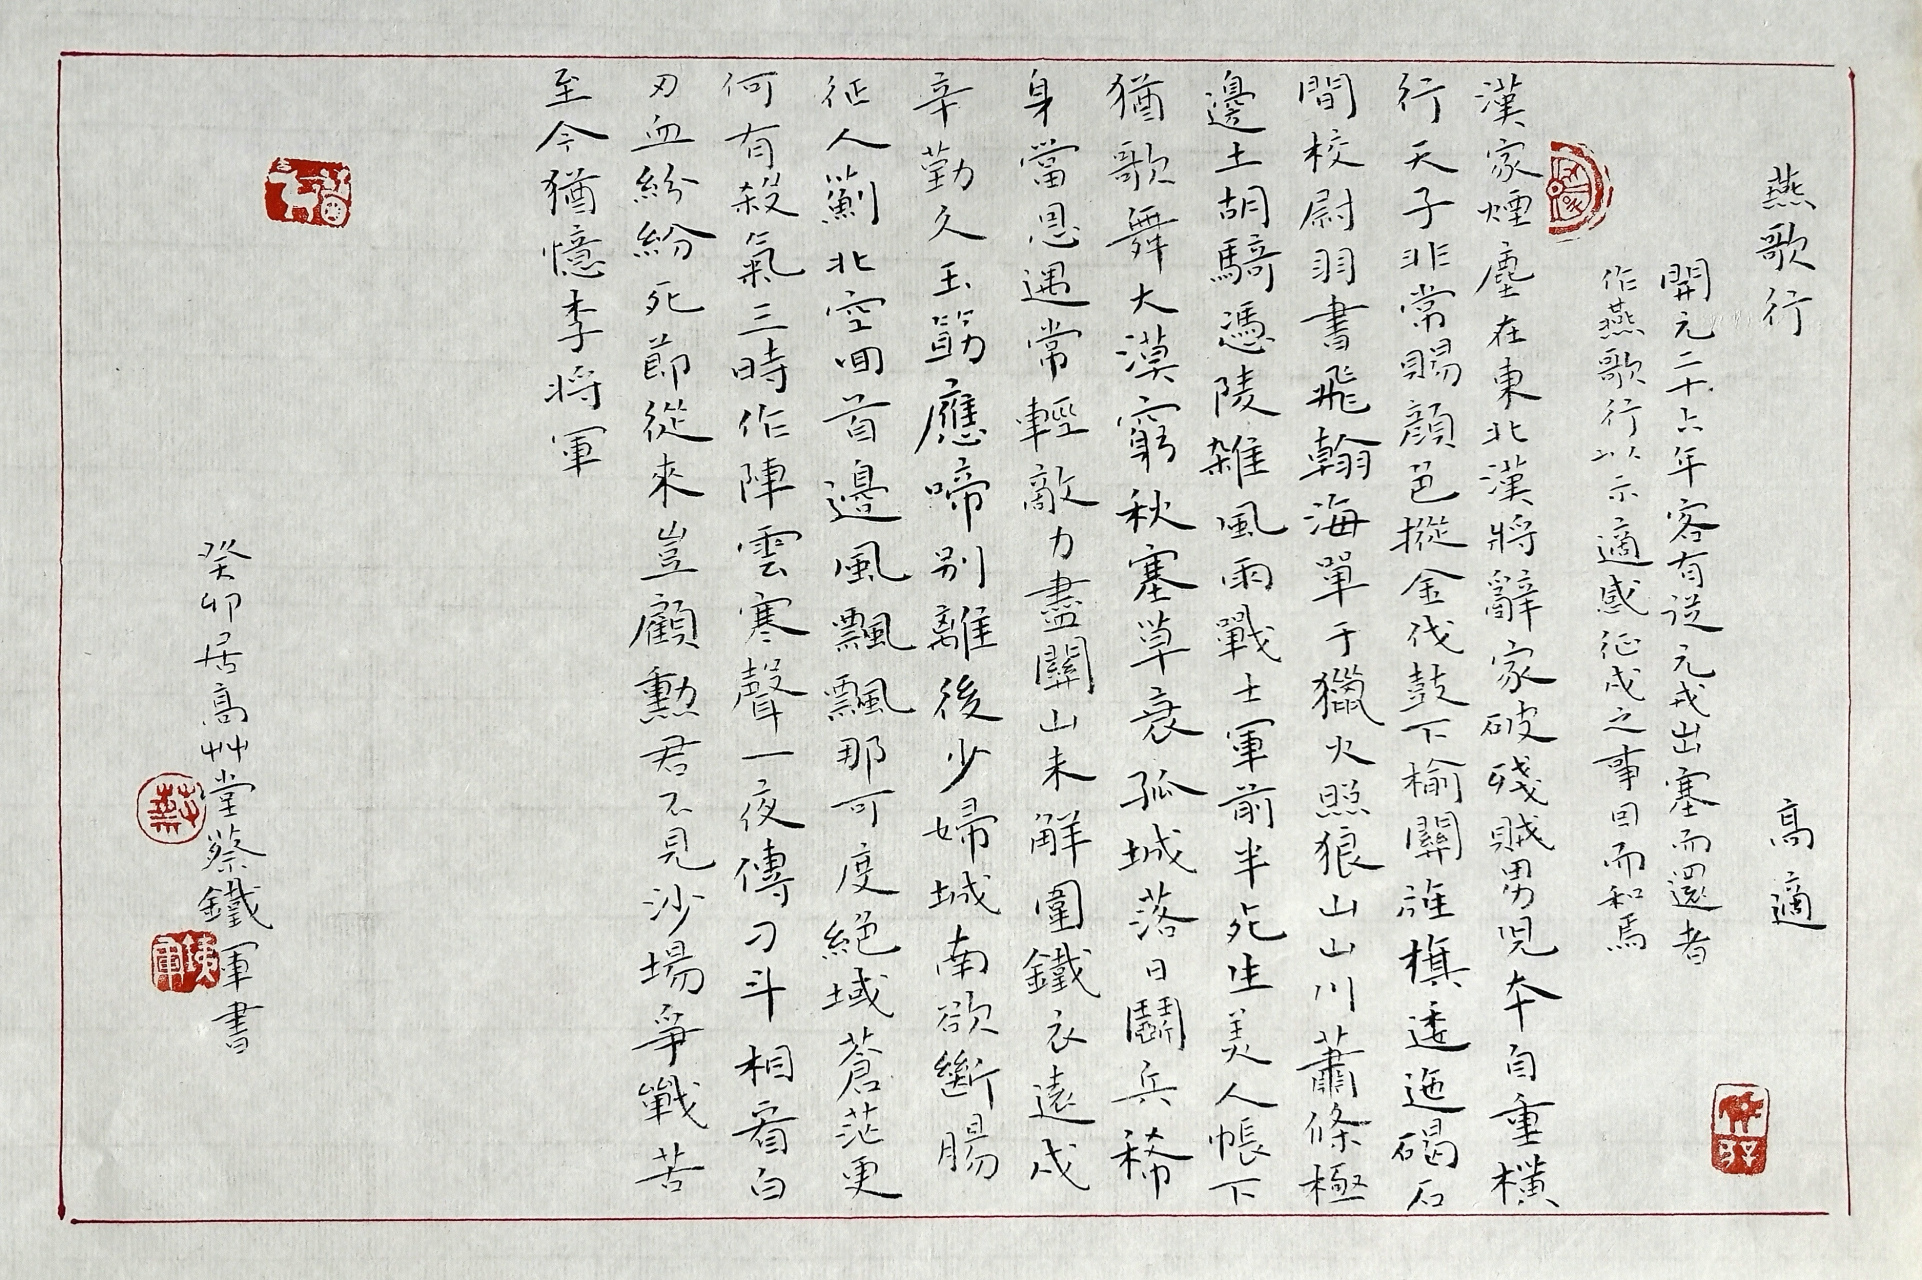 燕歌行 高適
開元二十六年客有従元戎出塞而還者
作燕歌行以示適感征戍之事因而和焉
漢家煙塵在東北漢將辭家破殘賊男児本自重橫
行天子非常賜顔色摐金伐鼓下榆關旌旗逶迤碣石
間校尉羽書飛翰海單于獵火照狼山山川蕭條極
邊土胡騎憑陵雜風雨戰士軍前半死生美人帳下
猶歌舞大漠窮秋塞草衰孤城落日鬪兵稀
身當恩遇常輕敵力盡關山未解圍鐵衣遠戍
辛勤久玉筯應啼別離後少婦城南欲斷腸
征人薊北空回首邊風飄飄那可度絕域蒼茫更
何有殺氣三時作陣雲寒聲一夜傳刁斗相看白
刃血紛紛死節從來豈顧勳君不見沙場爭戰苦
至今猶憶李将軍
癸卯居高艸堂蔡鐵軍書
鐵軍